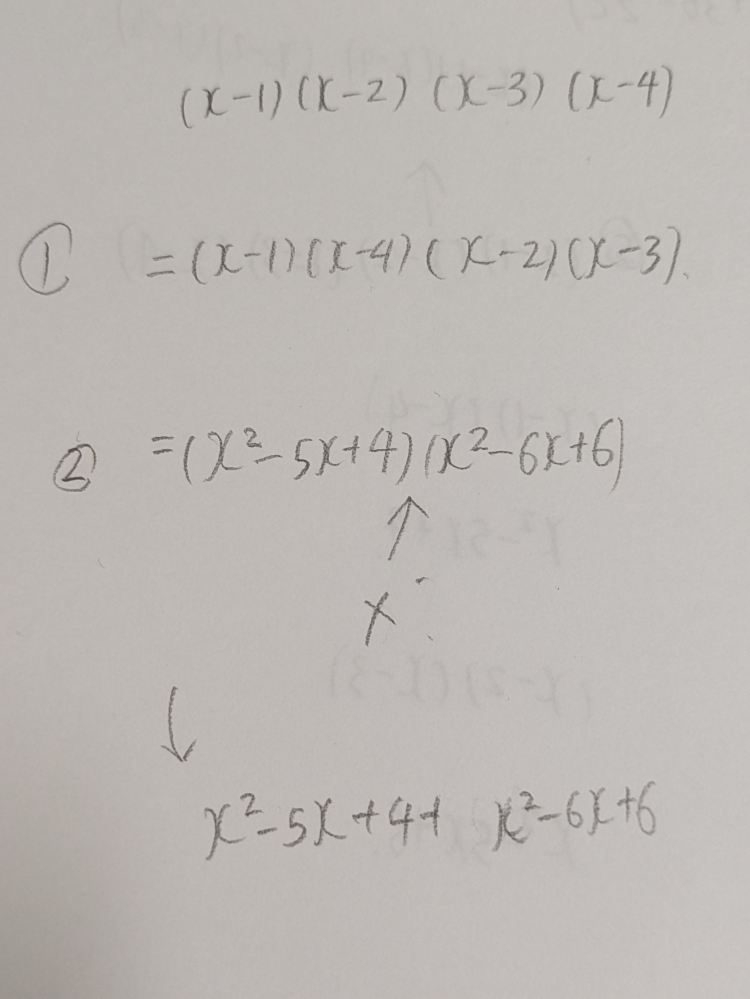 (x-1)(x-2)(x-3)(x-4)
① =(x-1)(x-4)(x-2)(x-3).
② =(x²-5x+4)(x²-6x+6)
↑
×
↓
x²-5x+4+ x²-6x+6